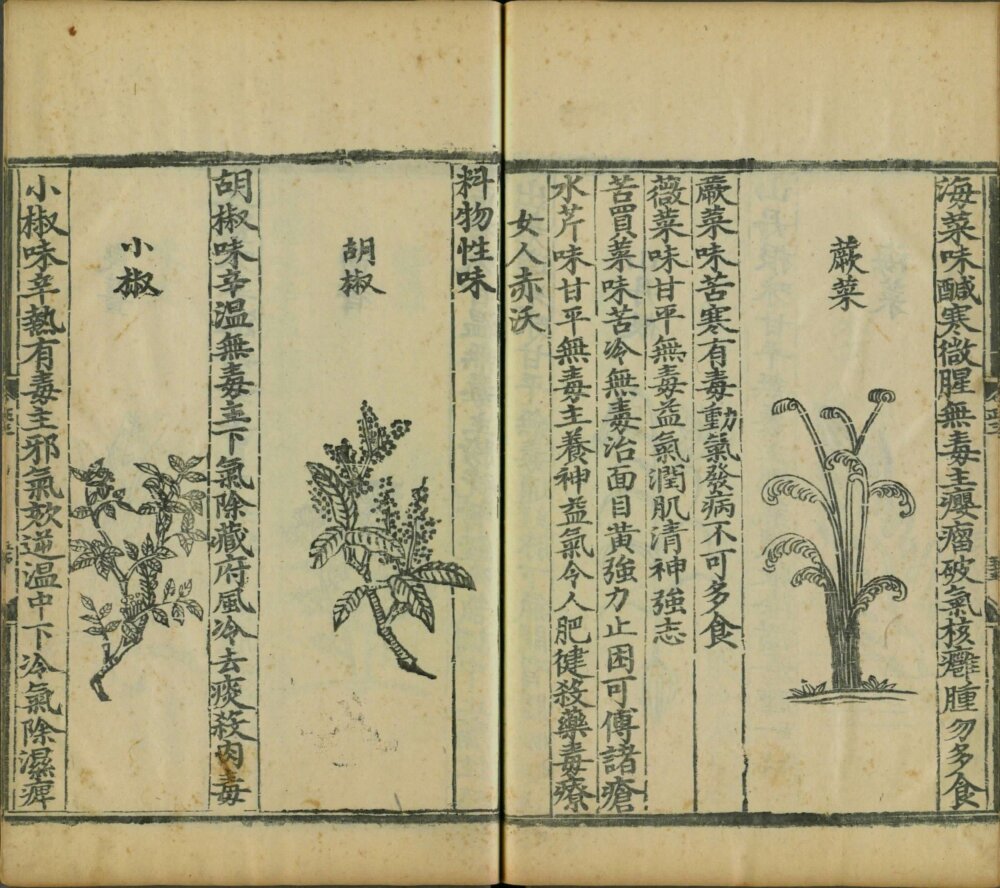 海菜味醎寒微腥無毒主癭瘤破氣核癰腫勿多食
蕨菜
蕨菜味苦寒有毒動氣發病不可多食
薇菜味甘平無毒益氣潤肌清神強志
苦買菜味苦冷無毒治面目黃強力止困可傅諸瘡
水芹味甘平無毒主養神益氣令人肥健殺藥毒療
女人赤沃
料物性味
胡椒
胡椒味辛溫無毒主下氣除藏府風冷去痰殺肉毒
小椒
小椒味辛熱有毒主邪氣欬逆溫中下冷氣除濕痹